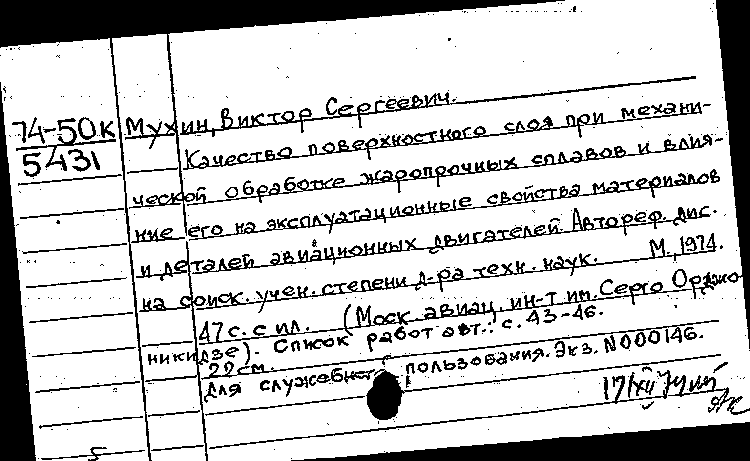 74-50к Мухин, Виктор Сергеевич.
5431
Качество поверхностного слоя при механи-
ческой обработке жаропрочных сплавов и влия-
ние его на эксплуатационные свойства материалов
и деталей авиационных двигателей. Автореф. дис.
на соиск. учен. степени д-ра техн. наук. М., 1974.
47 с. с ил. (Моск. авиац. ин-т им. Серго Орджо-
никидзе). Список работ авт.: с. 43-46.
22 см.
Для служебного пользования. Экз. N000146.